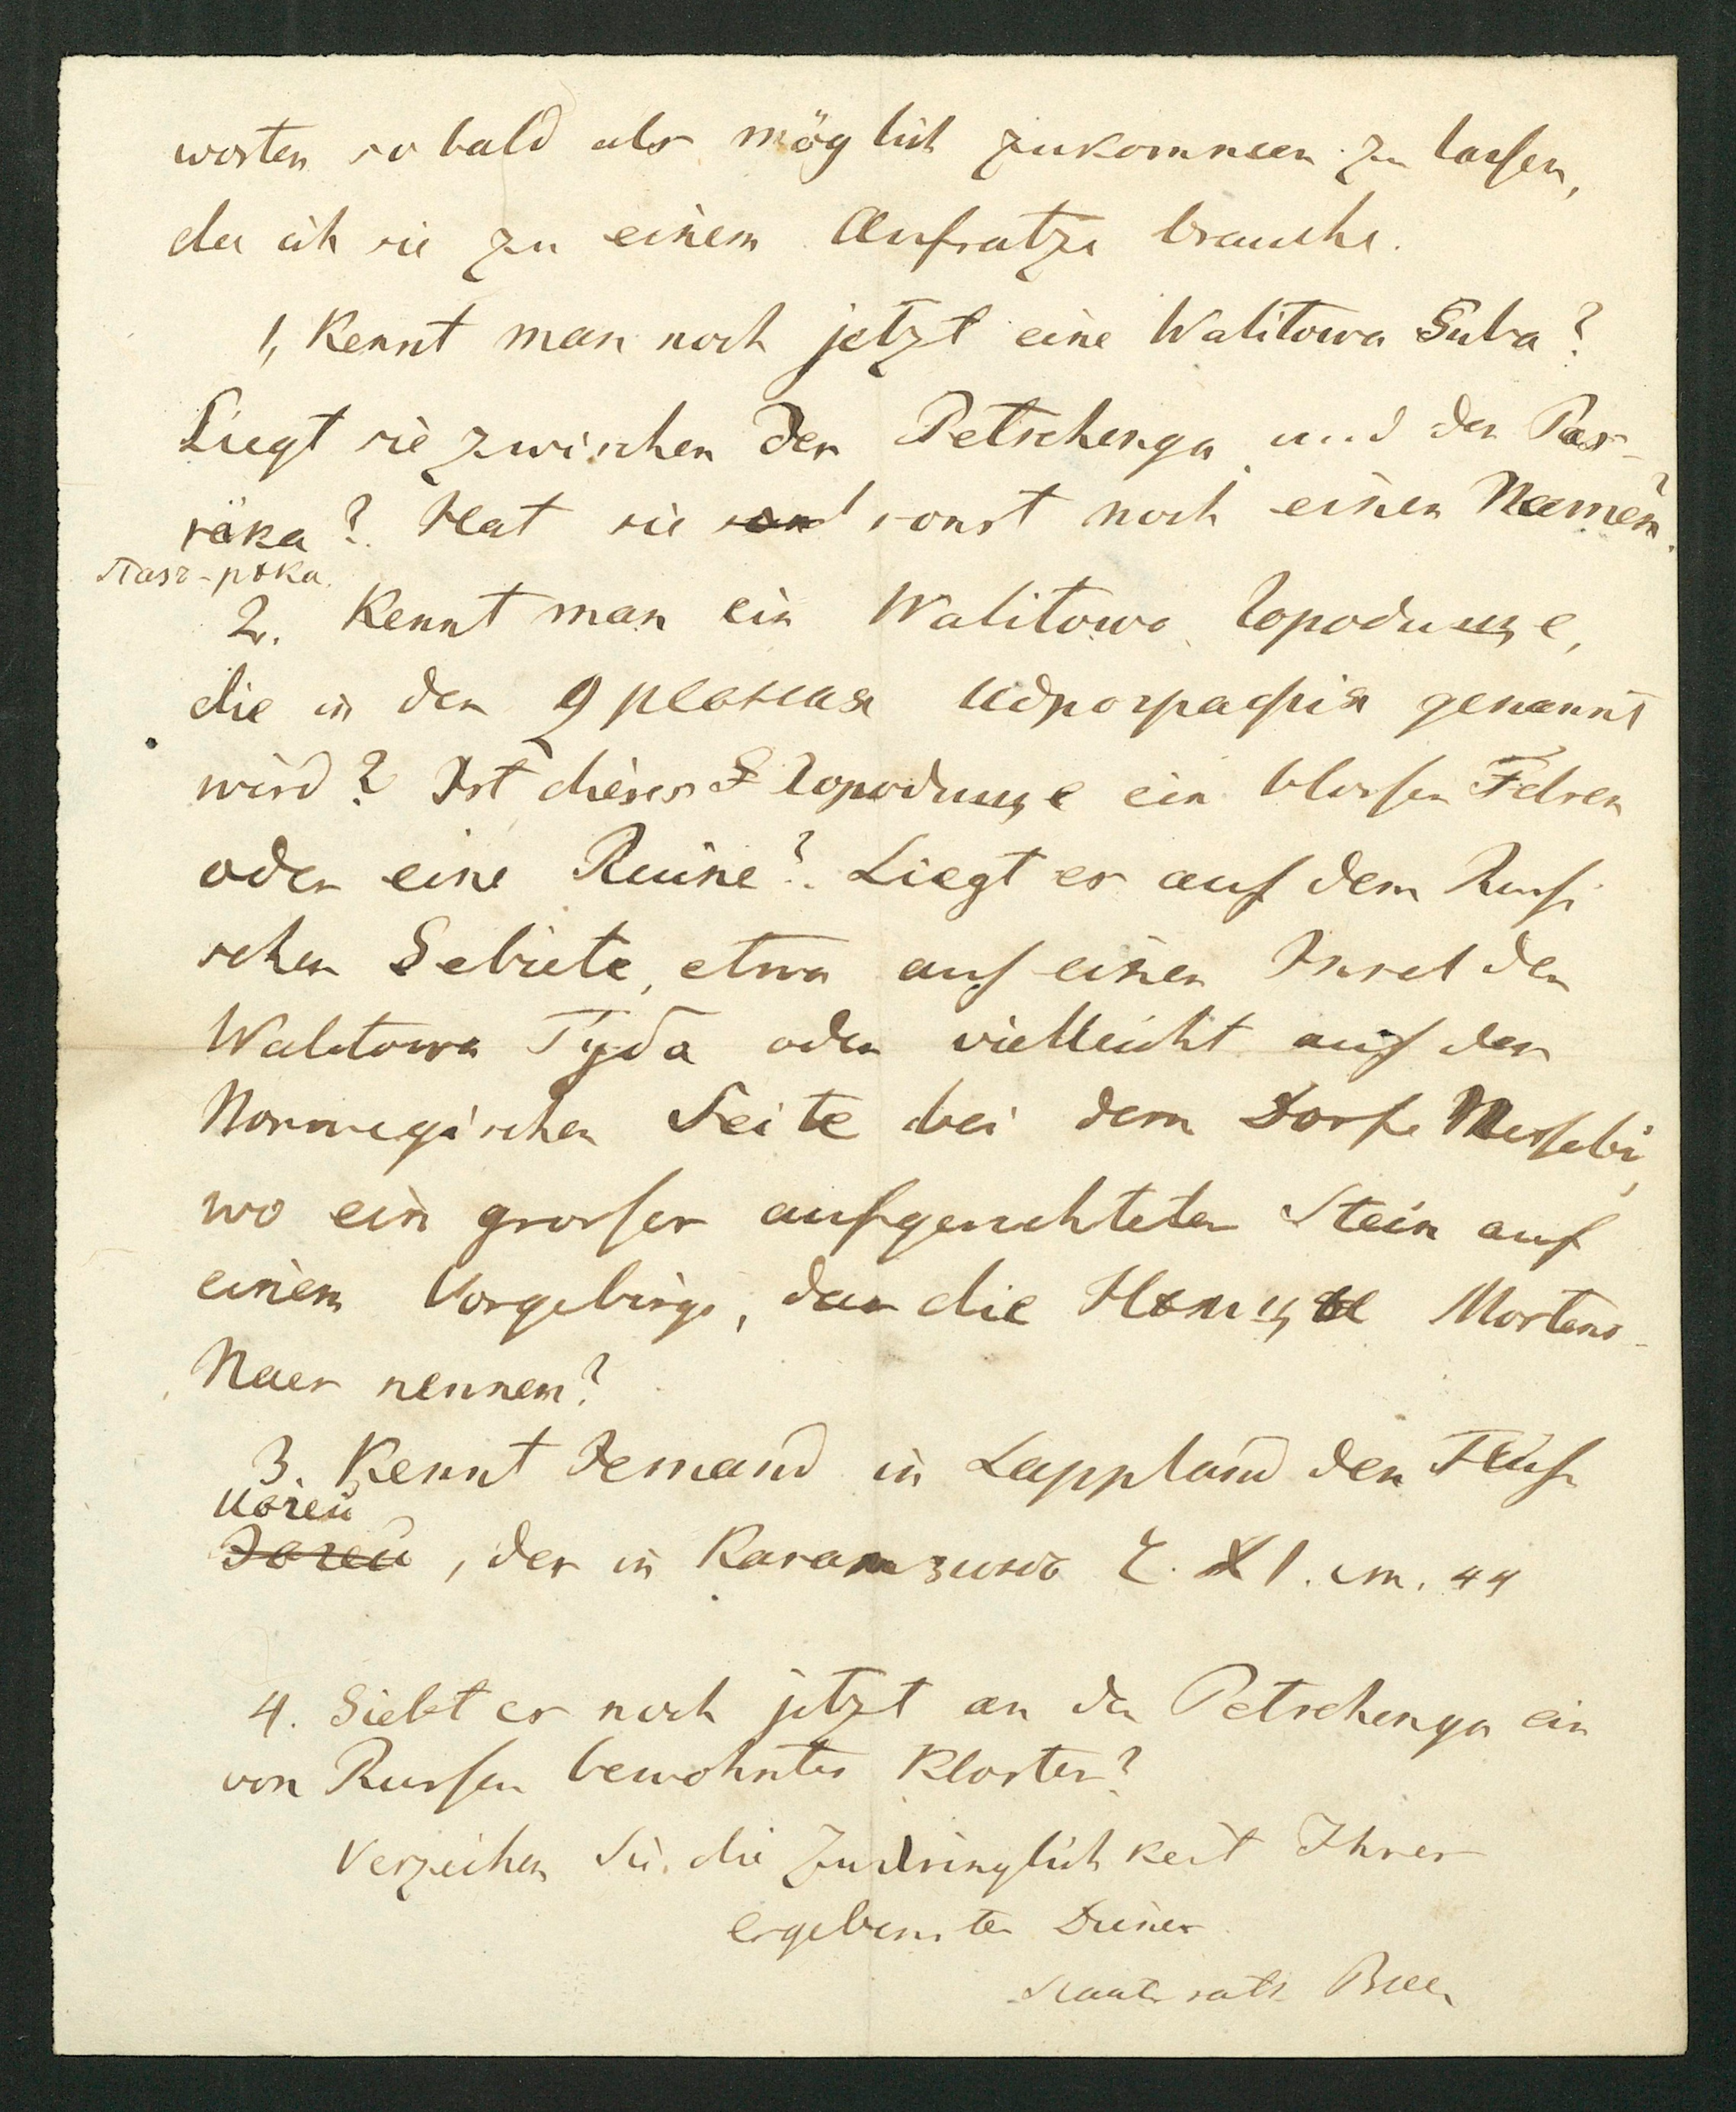 worten so bald als möglich zukommen zu lassen,
da ich sie zu einem Aufsatze brauche.
1, Kennt man noch jetzt eine Walitowa Guba?
Liegt sie zwischen der Petschenga und der Pas-
räka? Hat sie sonst noch einen Namen?
Пазъ-рѣка
2. Kennt man ein Walitowo городище,
die in der древняя идрографія genannt
wird? Ist dieses городище ein blosser Felsen
oder eine Ruine? Liegt es auf dem Russi
schen Gebiete, etwa auf einer Insel der
Walitowa Губа oder vielleicht auf der
Norwegischen Seite bei dem Dorfe
wo ein grosser aufgerichteter Stein auf
einem Vorgebirge, das die Нѣмцы Mortens-
Naes nennen?
3. Kennt Jemand in Lappland den Fluss
, der in Karamзинъ Т. XI. стр. 44
4. Giebt es noch jetzt an der Petschenga ein
von Russen bewohntes Kloster?
Verzeihen Sie die Zudringlichkeit Ihres
ergebensten Diener
Staatsrath Baer